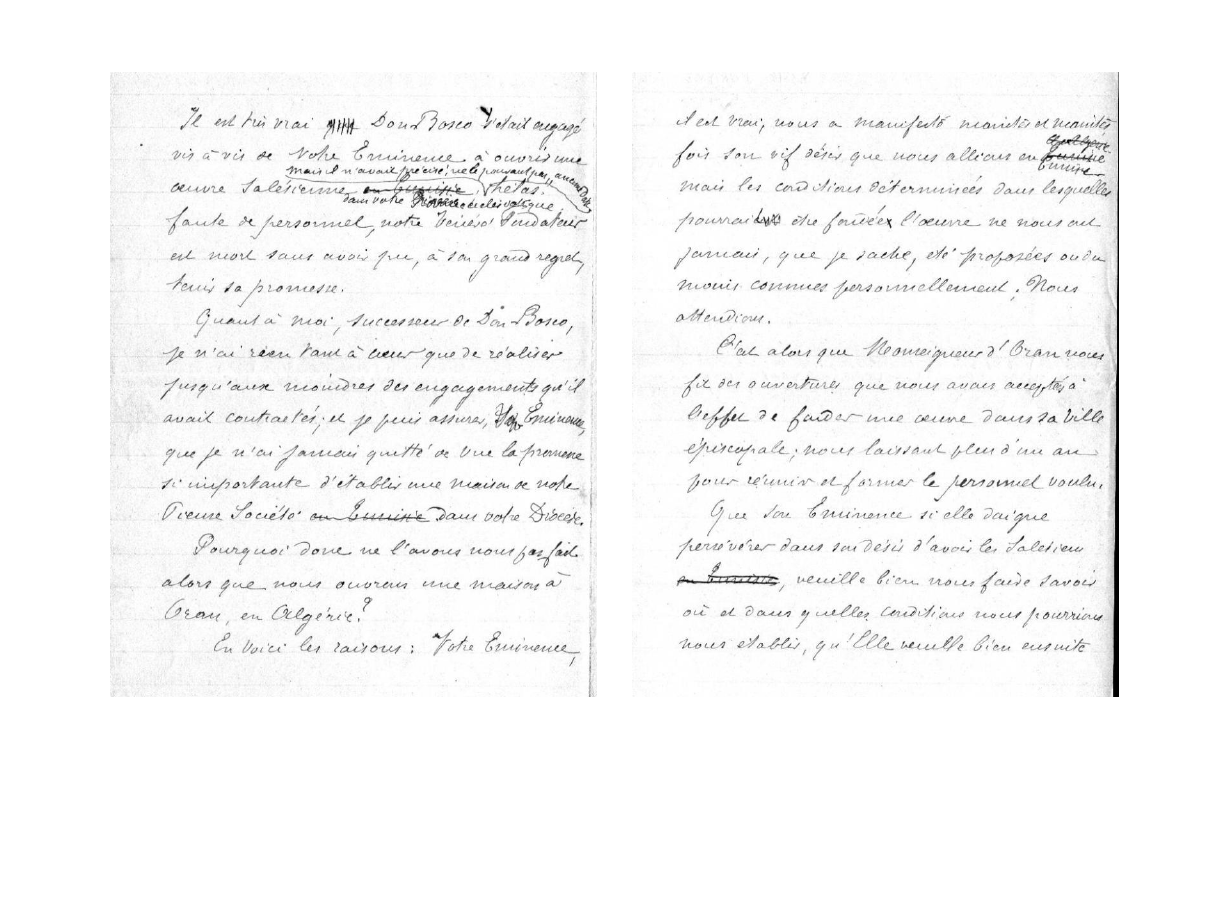 Il est très vrai Don Bosco s'était engagé
vis à vis de Votre Eminence à ouvrir une
mais il n'avait précisé, ne le pouvant pas, aucune date
œuvre Salésienne en Tunisie, hélas.
dans votre
faute de personnel, notre Vénéré Fondateur
est mort sans avoir pu, à son grand regret,
tenir sa promesse.
Quant à moi, successeur de Don Bosco,
je n'ai rien tant à cœur que de réaliser
jusqu'aux moindres des engagements qu'il
avait contractés; et je puis assurer, Eminence,
que je n'ai jamais quitté de vue la promesse
si importante d'établir une maison de notre
Pieuse Société en Tunisie dans votre Diocèse.
Pourquoi donc ne l'avons nous pas fait
alors que nous ouvrons une maison à
Oran, en Algérie?
En voici les raisons: Votre Eminence,
il est vrai, nous a manifesté maintes et maintes
fois son vif désir que nous allions en Tunisie
Tunisie
mais les conditions déterminées dans lesquelles
pourrait être fondée l'œuvre ne nous ont
jamais, que je sache, été proposées ou du
moins connues personnellement; Nous
attendions.
C'est alors que Monseigneur d'Oran nous
fit des ouvertures que nous avons acceptées à
l'effet de fonder une œuvre dans sa Ville
épiscopale; nous laissant plus d'un an
pour réunir et former le personnel voulu.
Que Son Eminence si elle daigne
persévérer dans son désir d'avoir les Salésiens
en Tunisie, veuille bien nous faire savoir
où et dans quelles conditions nous pourrions
nous établir, qu'Elle veuille bien ensuite